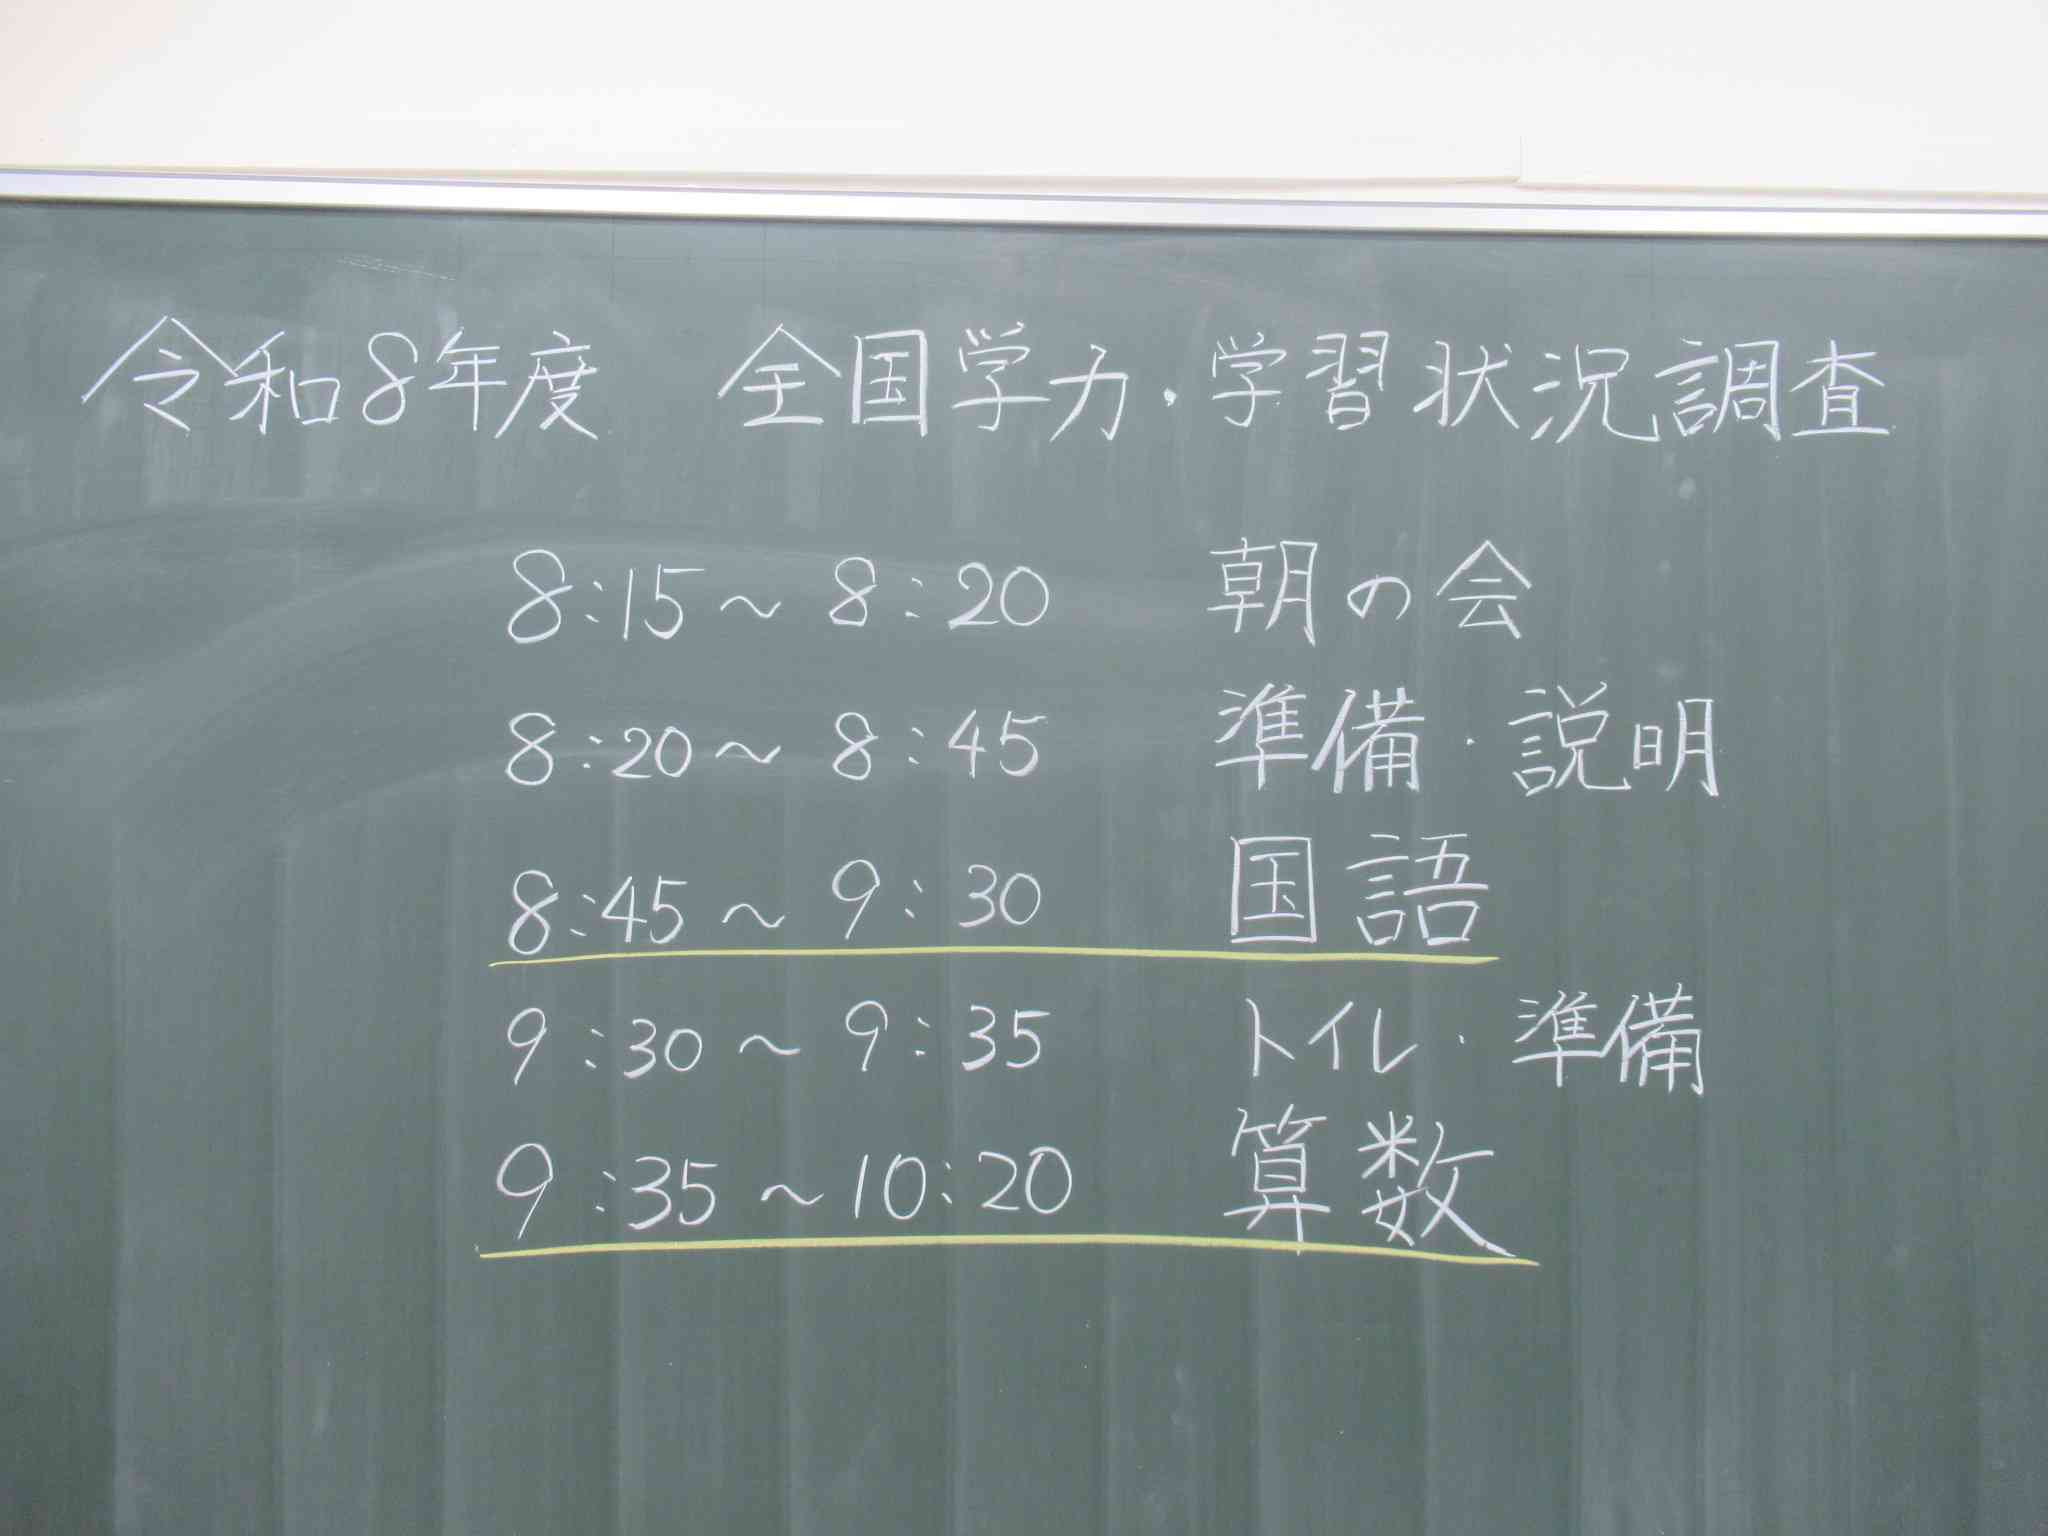 令和8年度 全国学力・学習状況調査
8:15〜8:20 朝の会
8:20〜8:45 準備・説明
8:45〜9:30 国語
9:30〜9:35 トイレ・準備
9:35〜10:20 算数